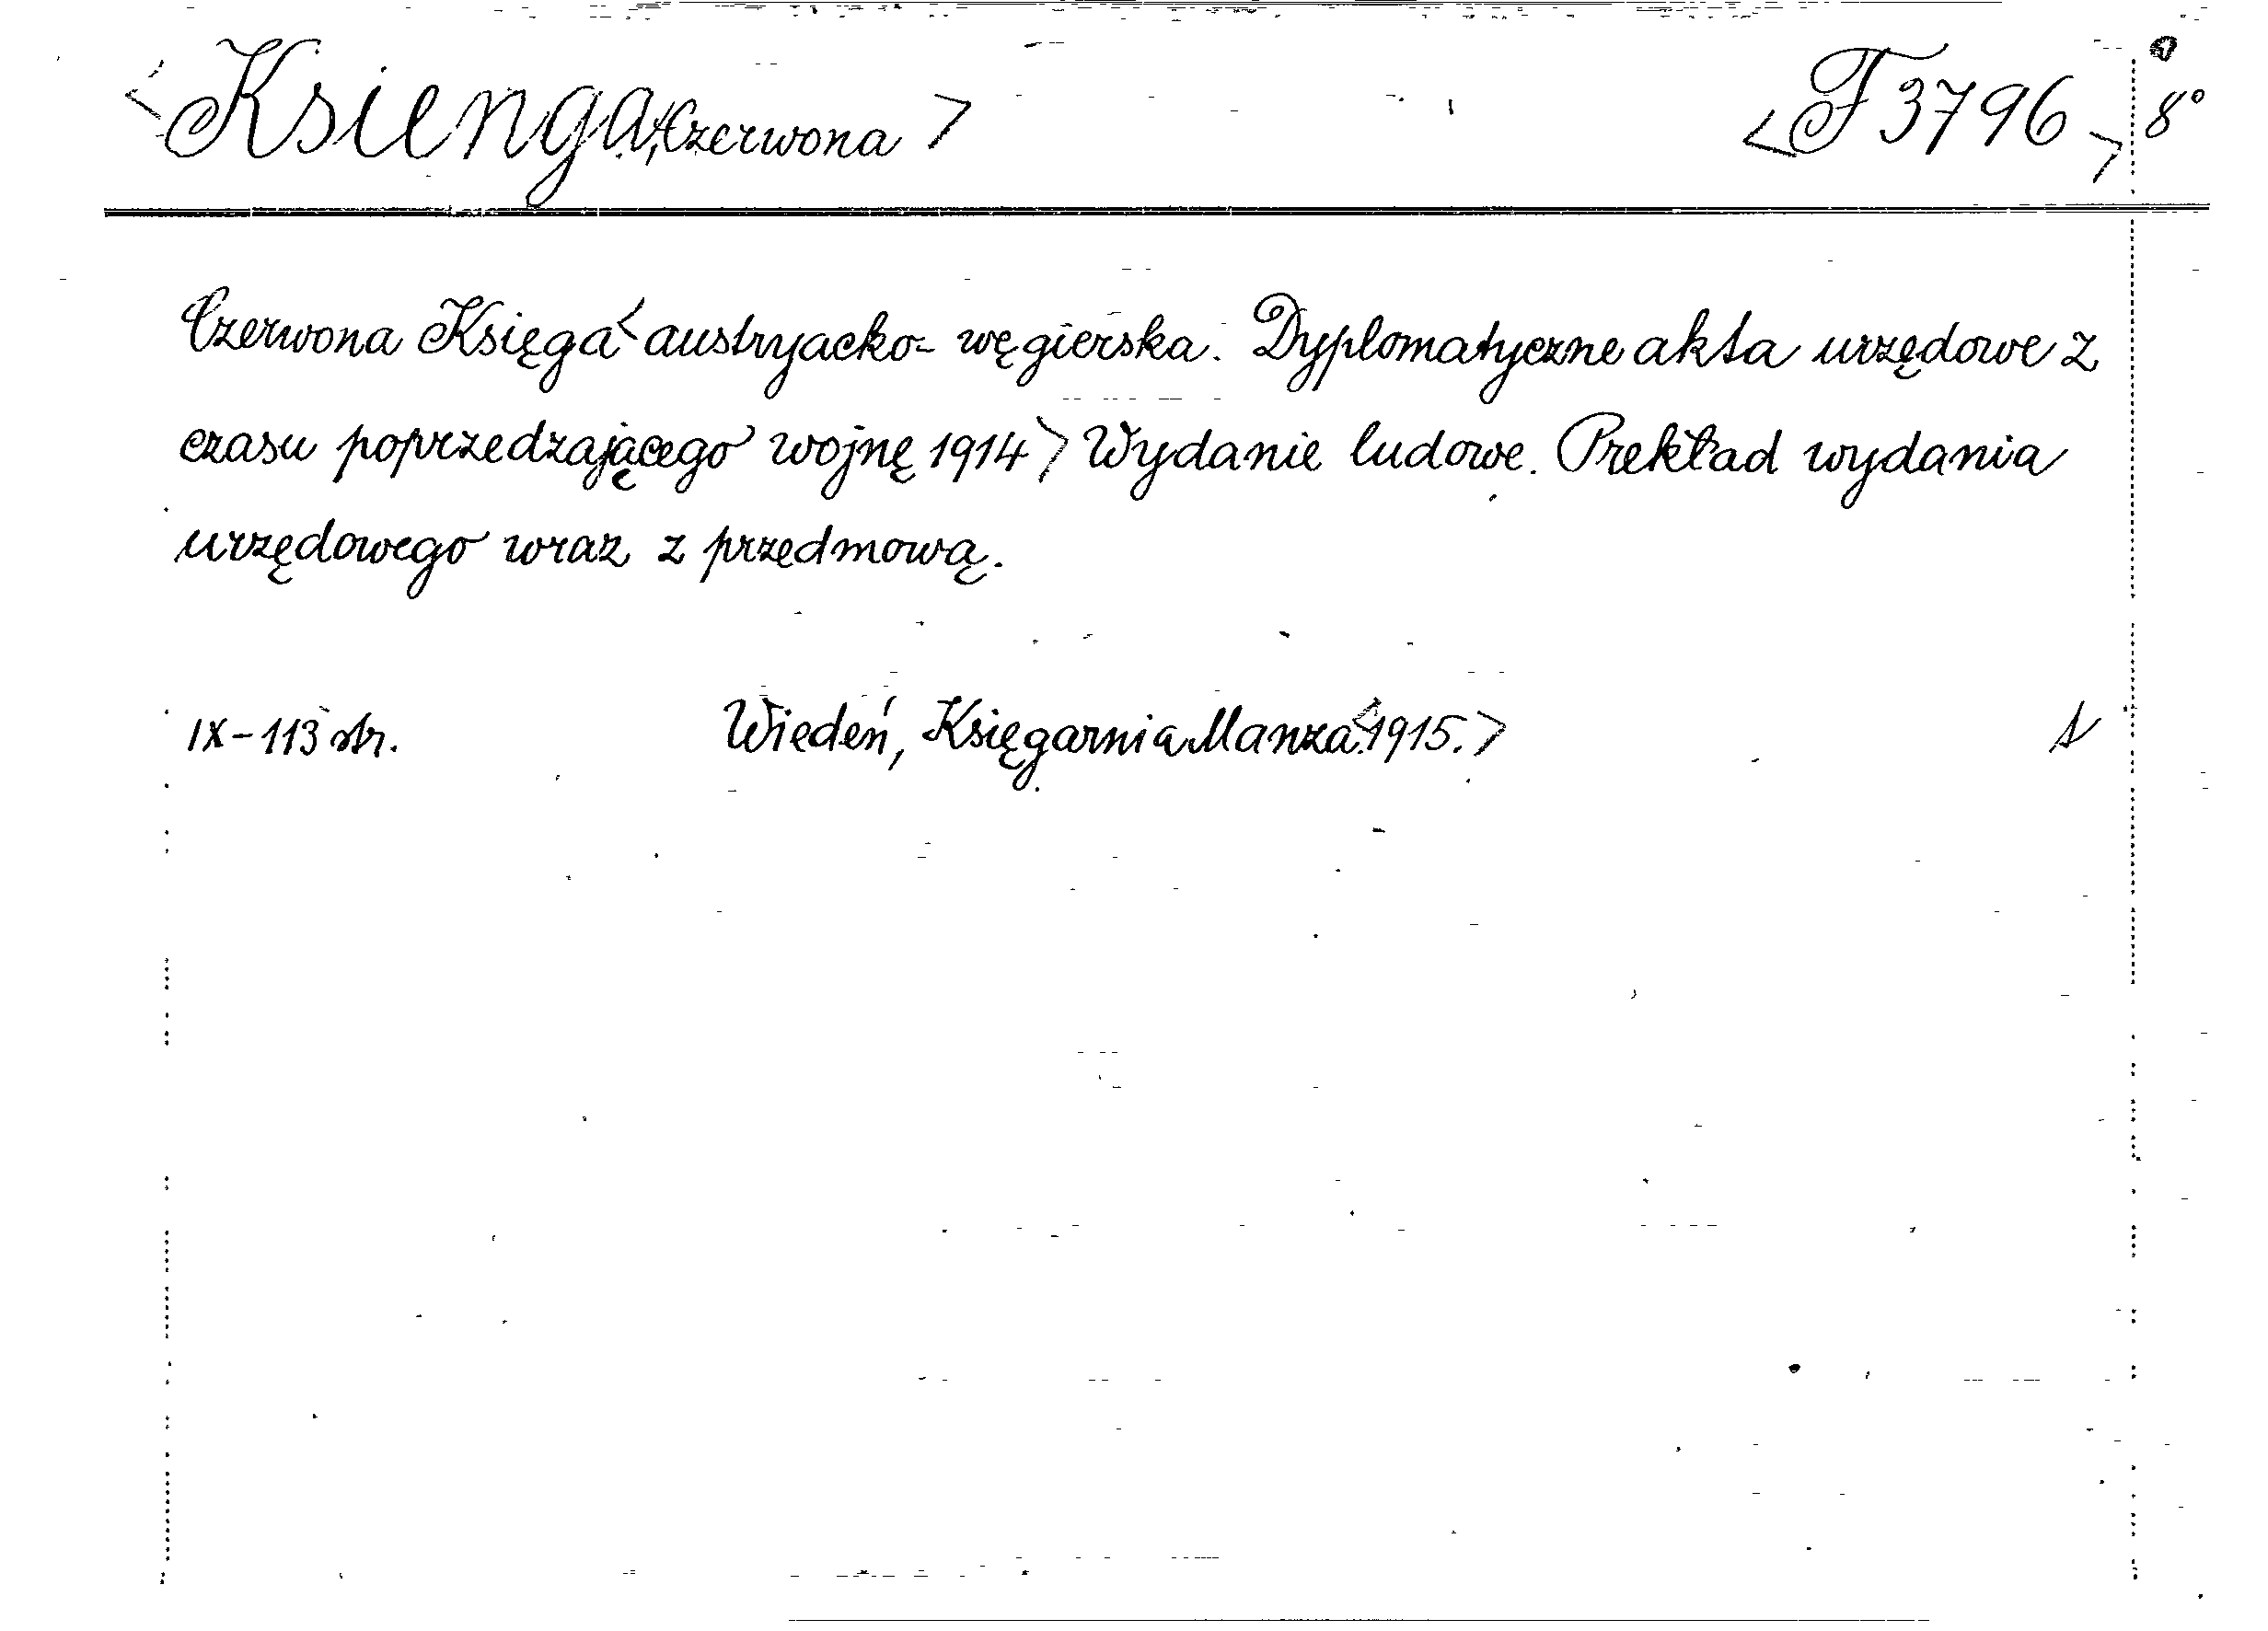 <Ksienga, Czerwona> <F 3796> 8°
Czerwona Księga <austryacko-węgierska. Dyplomatyczne akta urzędowe z
czasu poprzedzającego wojnę 1914> Wydanie ludowe. Prekład wydania
urzędowego wraz z przedmową.
IX-113 str. Wiedeń, Księgarnia Manza. <1915.>